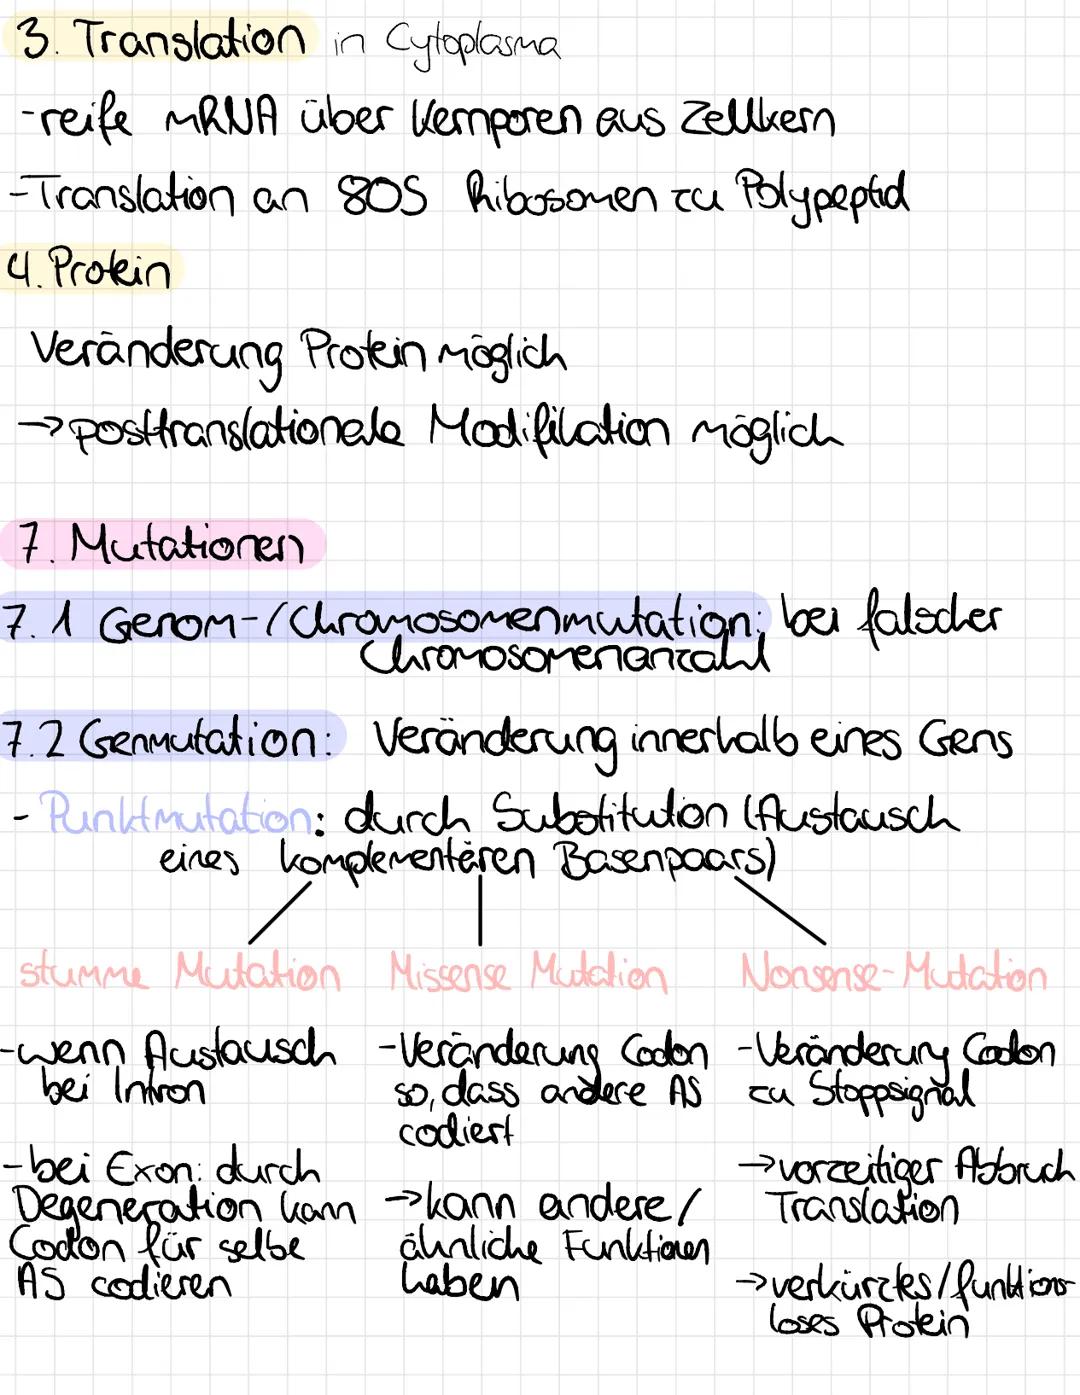 3. Translation in Cytoplasma
-reife mRNA über Kernporen aus Zellkern
-Translation an 80S Ribosomen zu Polypeptid
4. Protein
Veränderung Protein möglich
→posttranslationale Modifikation möglich
7. Mutationen
7.1 Genom-/Chromosomenmutation: bei falscher
Chromosomenanzahl
7.2 Genmutation: Veränderung innerhalb eines Gens
- Punktmutation: durch Substitution (Austausch
eines komplementären Basenpaars)
stumme Mutation
-wenn Austausch
bei Intron
-bei Exon: durch
Degeneration kann
Codon für selbe
AS codieren
Missense Mutation
-Veränderung Codon
so, dass andere AS
codiert
→kann andere/
ähnliche Funktionen
haben
Nonsense-Mutation
-Veränderung Codon
zu Stoppsignal
→vorzeitiger Abbruch
Translation
→verkürztes/funktions
loses Protein